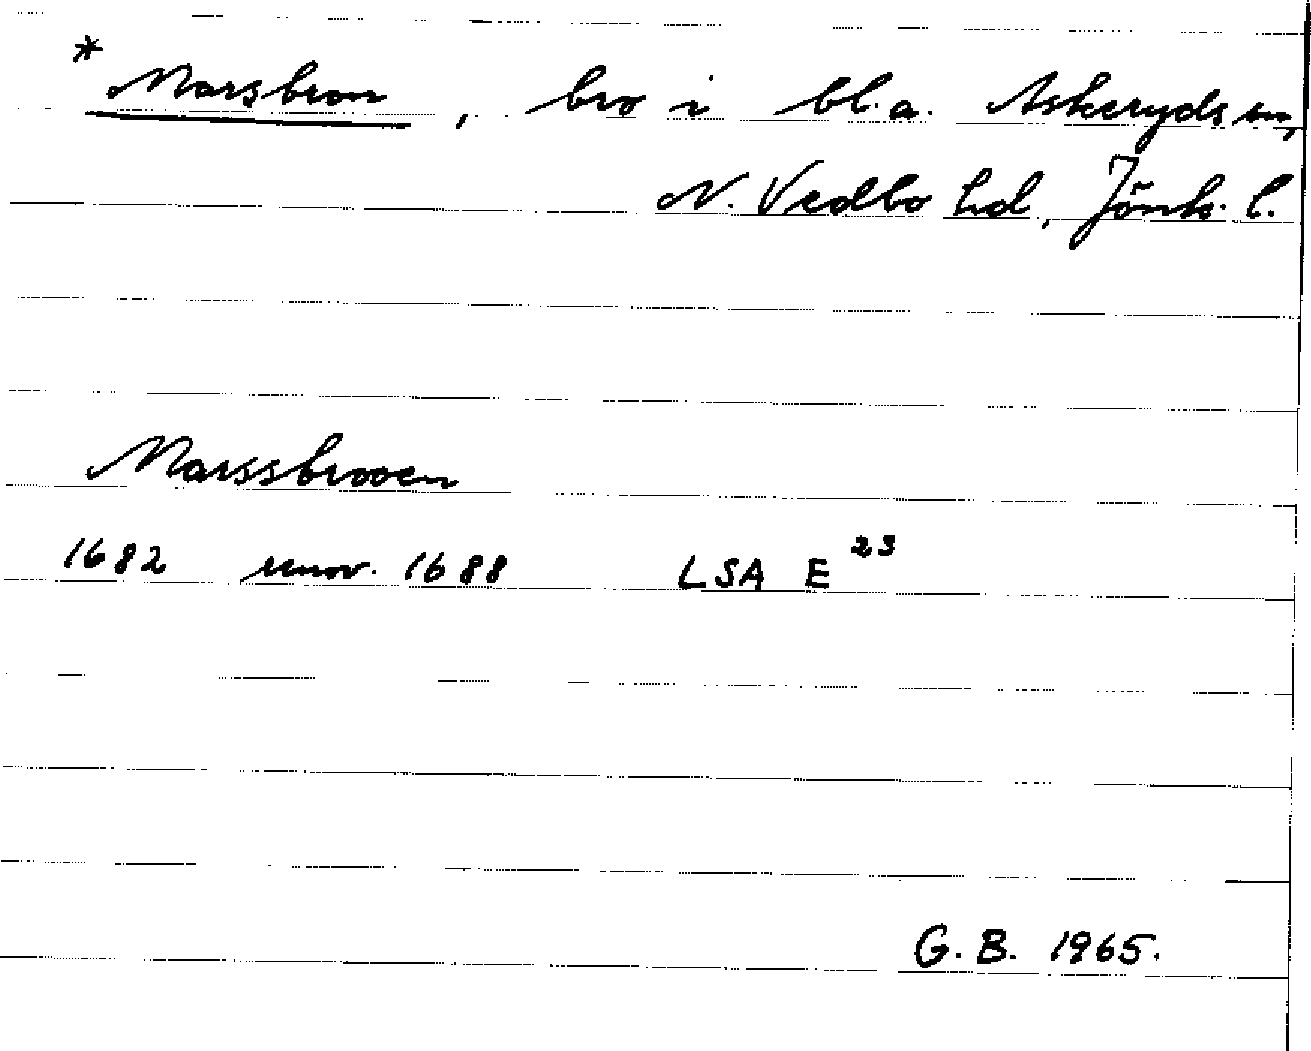 * Marsbron, bro i bl.a. Askeryds sn,
N. Vedbo hd, Jönk. l.
Marssbrooen
1682 renov. 1688 LSA E 23
G. B. 1965.